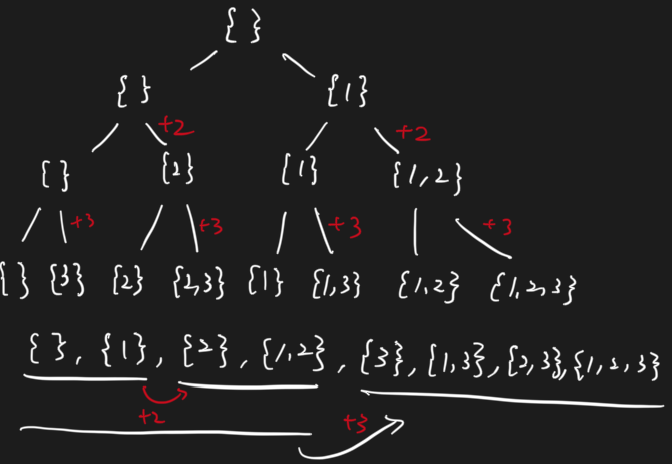 { }
{ } {1}
+2 +2
{ } {2} {1} {1,2}
+3 +3 +3 +3
{ } {3} {2} {2,3} {1} {1,3} {1,2} {1,2,3}
{ }, {1}, {2}, {1,2}, {3}, {1,3}, {2,3}, {1,2,3}
+2 +3